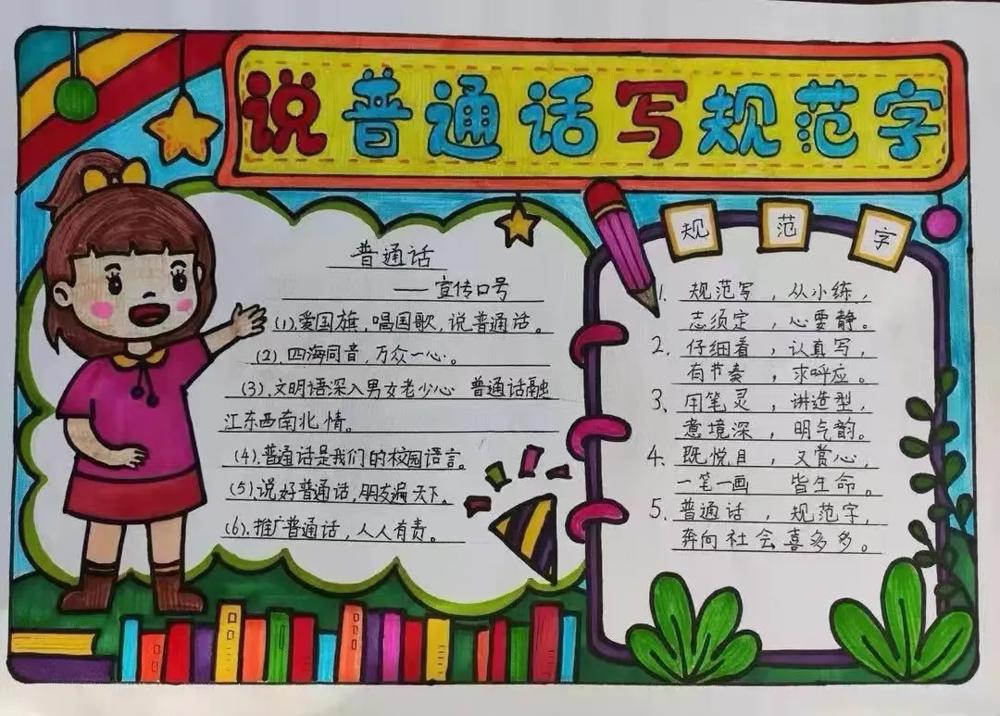 说普通话写规范字
普通话
——宣传口号
(1).爱国旗,唱国歌,说普通话。
(2).四海同音,万众一心。
(3).文明语深入男女老少心 普通话融
江东西南北情。
(4).普通话是我们的校园语言。
(5).说好普通话,朋友遍天下。
(6).推广普通话,人人有责。
规范字
1. 规范写,从小练,
志须定,心要静。
2. 仔细看,认真写,
有节奏,求呼应。
3. 用笔灵,讲造型,
意境深,明气韵。
4. 既悦目,又赏心,
一笔一画 皆生命。
5. 普通话,规范字,
奔向社会喜多多。